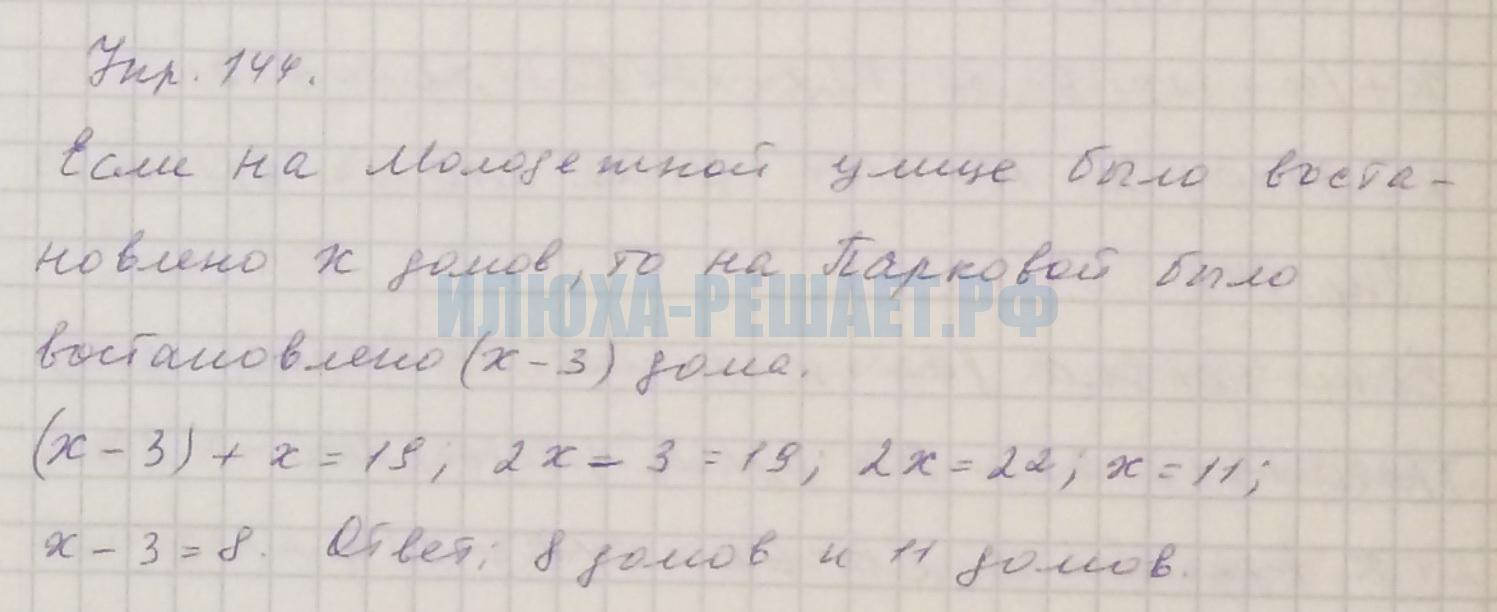 Упр. 144.
Если на Молодежной улице было воста-
новлено х домов, то на Парковой было
ИЛЮХА-РЕШАЕТ.РФ
востановлено (х-3) дома.
(х-3)+х=19; 2х-3=19; 2х=22; х=11;
х-3=8. Ответ: 8 домов и 11 домов.